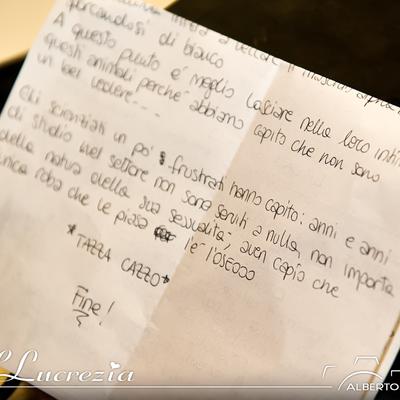 sporcandosi di bianco
A questo punto è meglio lasciare nella loro
questi animali perché abbiamo capito che non sono
un bel vedere....
Gli scienziati un po' frustrati hanno capito: anni e anni
di studio nel settore non sono serviti a nulla, non importa
della natura della sua sessualità, aven capio che
unica roba che le piase l'è l'OSEOOO
*TAZZA CAZZO*
Fine!
Lucrezia
ALBERTO